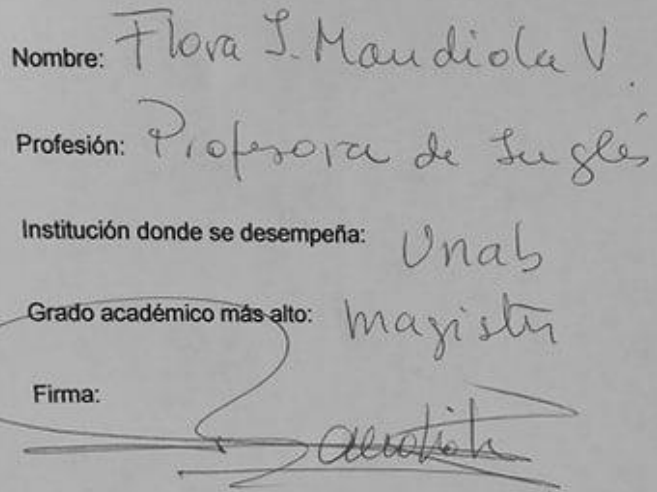 Nombre: Flora I. Mandiola V.
Profesión: Profesora de Inglés
Institución donde se desempeña: Unab
Grado académico más alto: Magister
Firma: